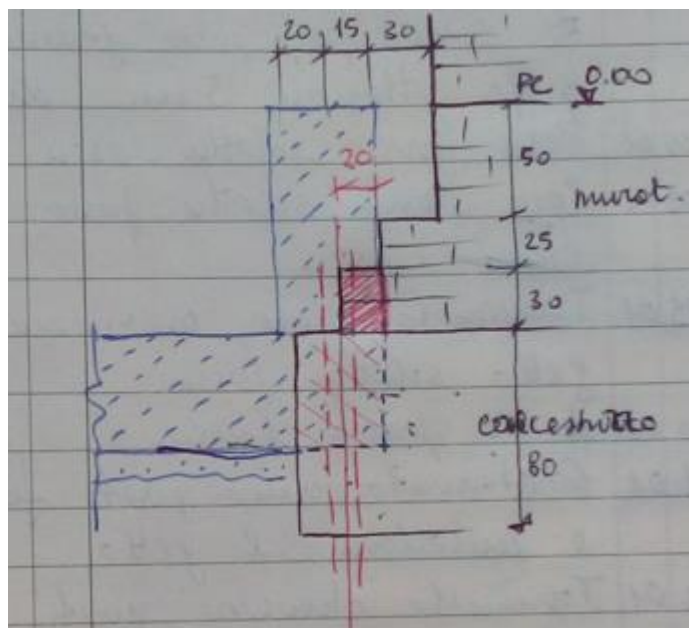 20 15 30
PC 0.00
20
50
murat.
25
30
calcestruzzo
80